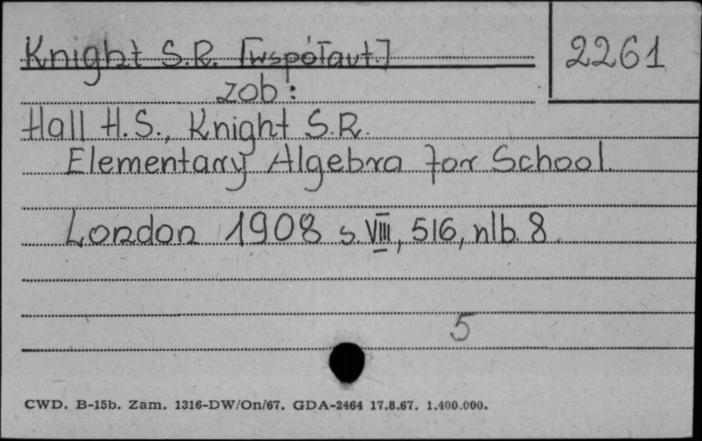 Knight S.R. [współaut.]
2261
zob:
Hall H.S., Knight S.R.
Elementary Algebra for School.
London 1908 s. VIII, 516, nlb. 8.
5
CWD. B-15b. Zam. 1316-DW/On/67. GDA-2464 17.8.67. 1.400.000.